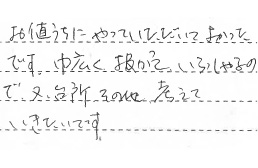 お値うちにやっていただいてよかった
です。巾広く扱かっていらっしゃるの
で又、台所、その他、考えて
いきたいです。